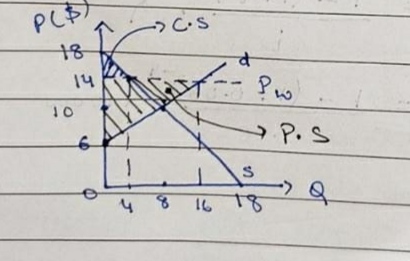 P($)
C.S
18
d
14
Pw
10
P.S
6
S
0
4
8
16
18
Q